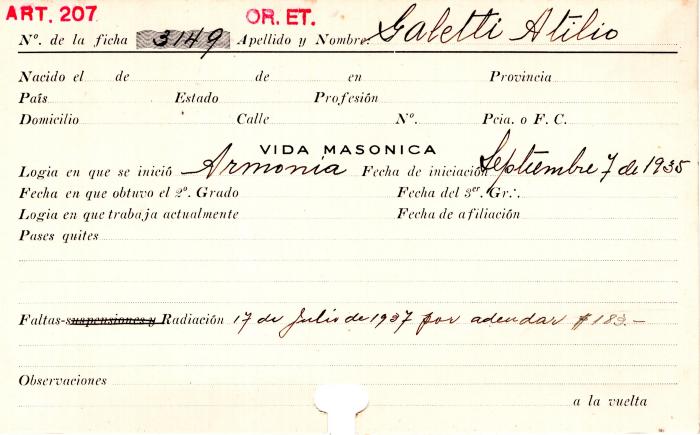 ART. 207 OR. ET.
Nº. de la ficha 3149 Apellido y Nombre: Galetti Atilio
Nacido el de de en Provincia
País Estado Profesión
Domicilio Calle Nº. Pcia. o F. C.
VIDA MASONICA
Logia en que se inició Armonia Fecha de iniciación Septiembre 7 de 1935
Fecha en que obtuvo el 2º. Grado Fecha del 3er. Gr∴.
Logia en que trabaja actualmente Fecha de afiliación
Pases quites
Faltas-suspensiones y Radiación 17 de Julio de 1937 por adeudar $ 183.-
Observaciones
a la vuelta